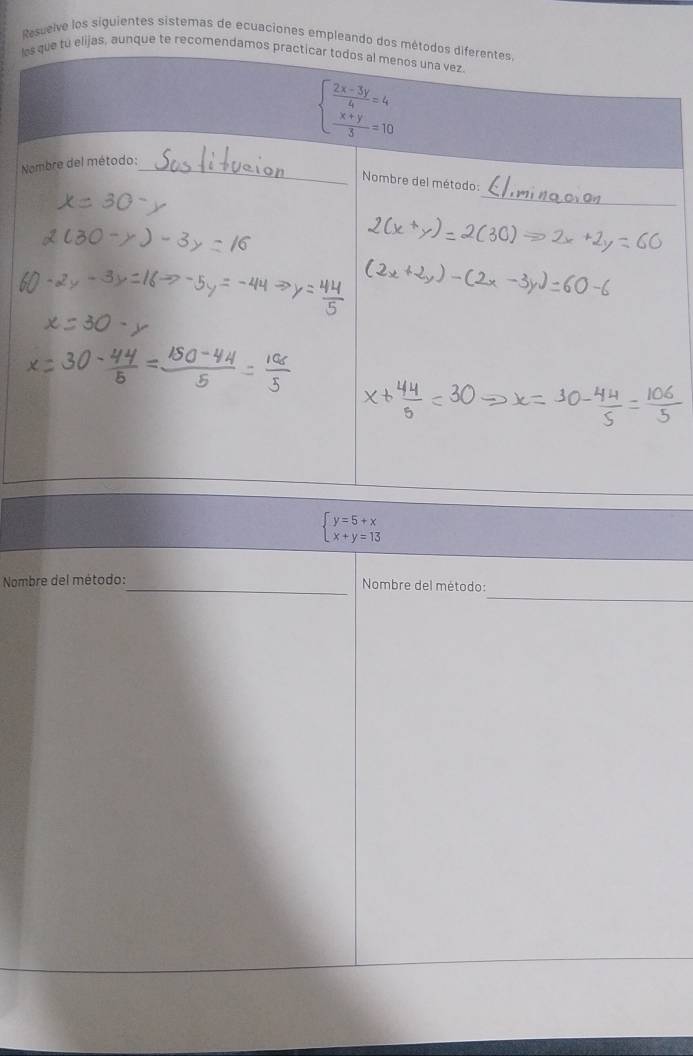 Resuelve los siguientes sistemas de ecuaciones empleando dos métodos diferentes,
los que tú elijas, aunque te recomendamos practicar todos al menos una vez.
{ (2x - 3y)/4 = 4
(x + y)/3 = 10
Nombre del método: Sustitucion
x = 30 - y
2(30 - y) - 3y = 16
60 - 2y - 3y = 16 → -5y = -44 → y = 44/5
x = 30 - y
x = 30 - 44/5 = (150 - 44)/5 = 106/5
Nombre del método: Eliminacion
2(x + y) = 2(30) ⇒ 2x + 2y = 60
(2x + 2y) - (2x - 3y) = 60 - 6
x + 44/5 = 30 ⇒ x = 30 - 44/5 = 106/5
{ y = 5 + x
x + y = 13
Nombre del método:
Nombre del método: